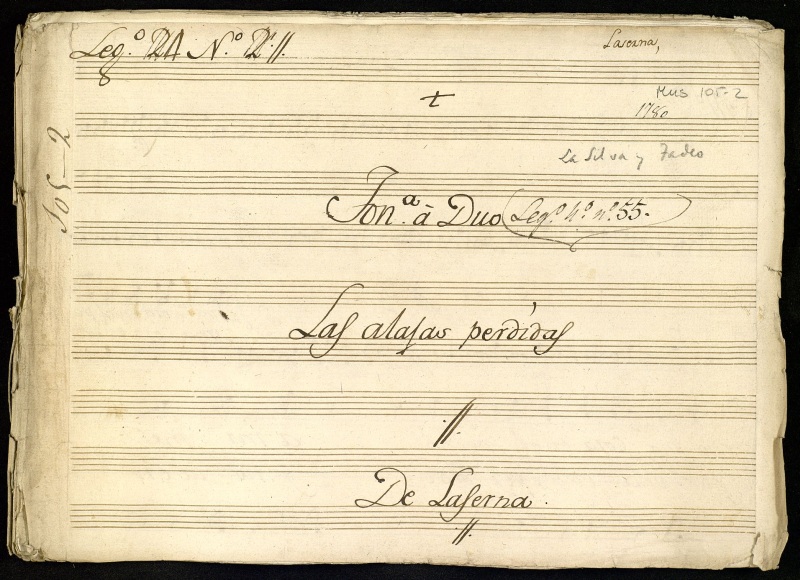 Leg.º 24 N.º 2
Laserna,
8
Mus 105-2
1780
105-2
La Silva y Tadeo
Ton.ª â Duo (Leg.º 4.º nº 55.
Las alajas perdidas
De Laserna.